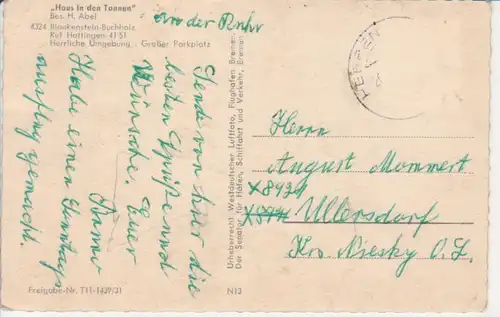 „Haus in den Tannen"
Bes. H. Abel
4324 Blankenstein-Buchholz
Ruf Hattingen 4151
Herrliche Umgebung Großer Parkplatz
an der Ruhr
Sende von hier die
besten Grüße und
Wünsche. Euer
Habe einen Sonntags
ausflug gemacht.
Freigabe-Nr. T11-1439/31
N13
Urheberrecht Westdeutscher Luftfoto, Flughafen Bremen
Der Senator für Häfen, Schiffahrt und Verkehr, Bremen
Herrn
August Mommert
X8921
Ullersdorf
Krs. Niesky O.L.